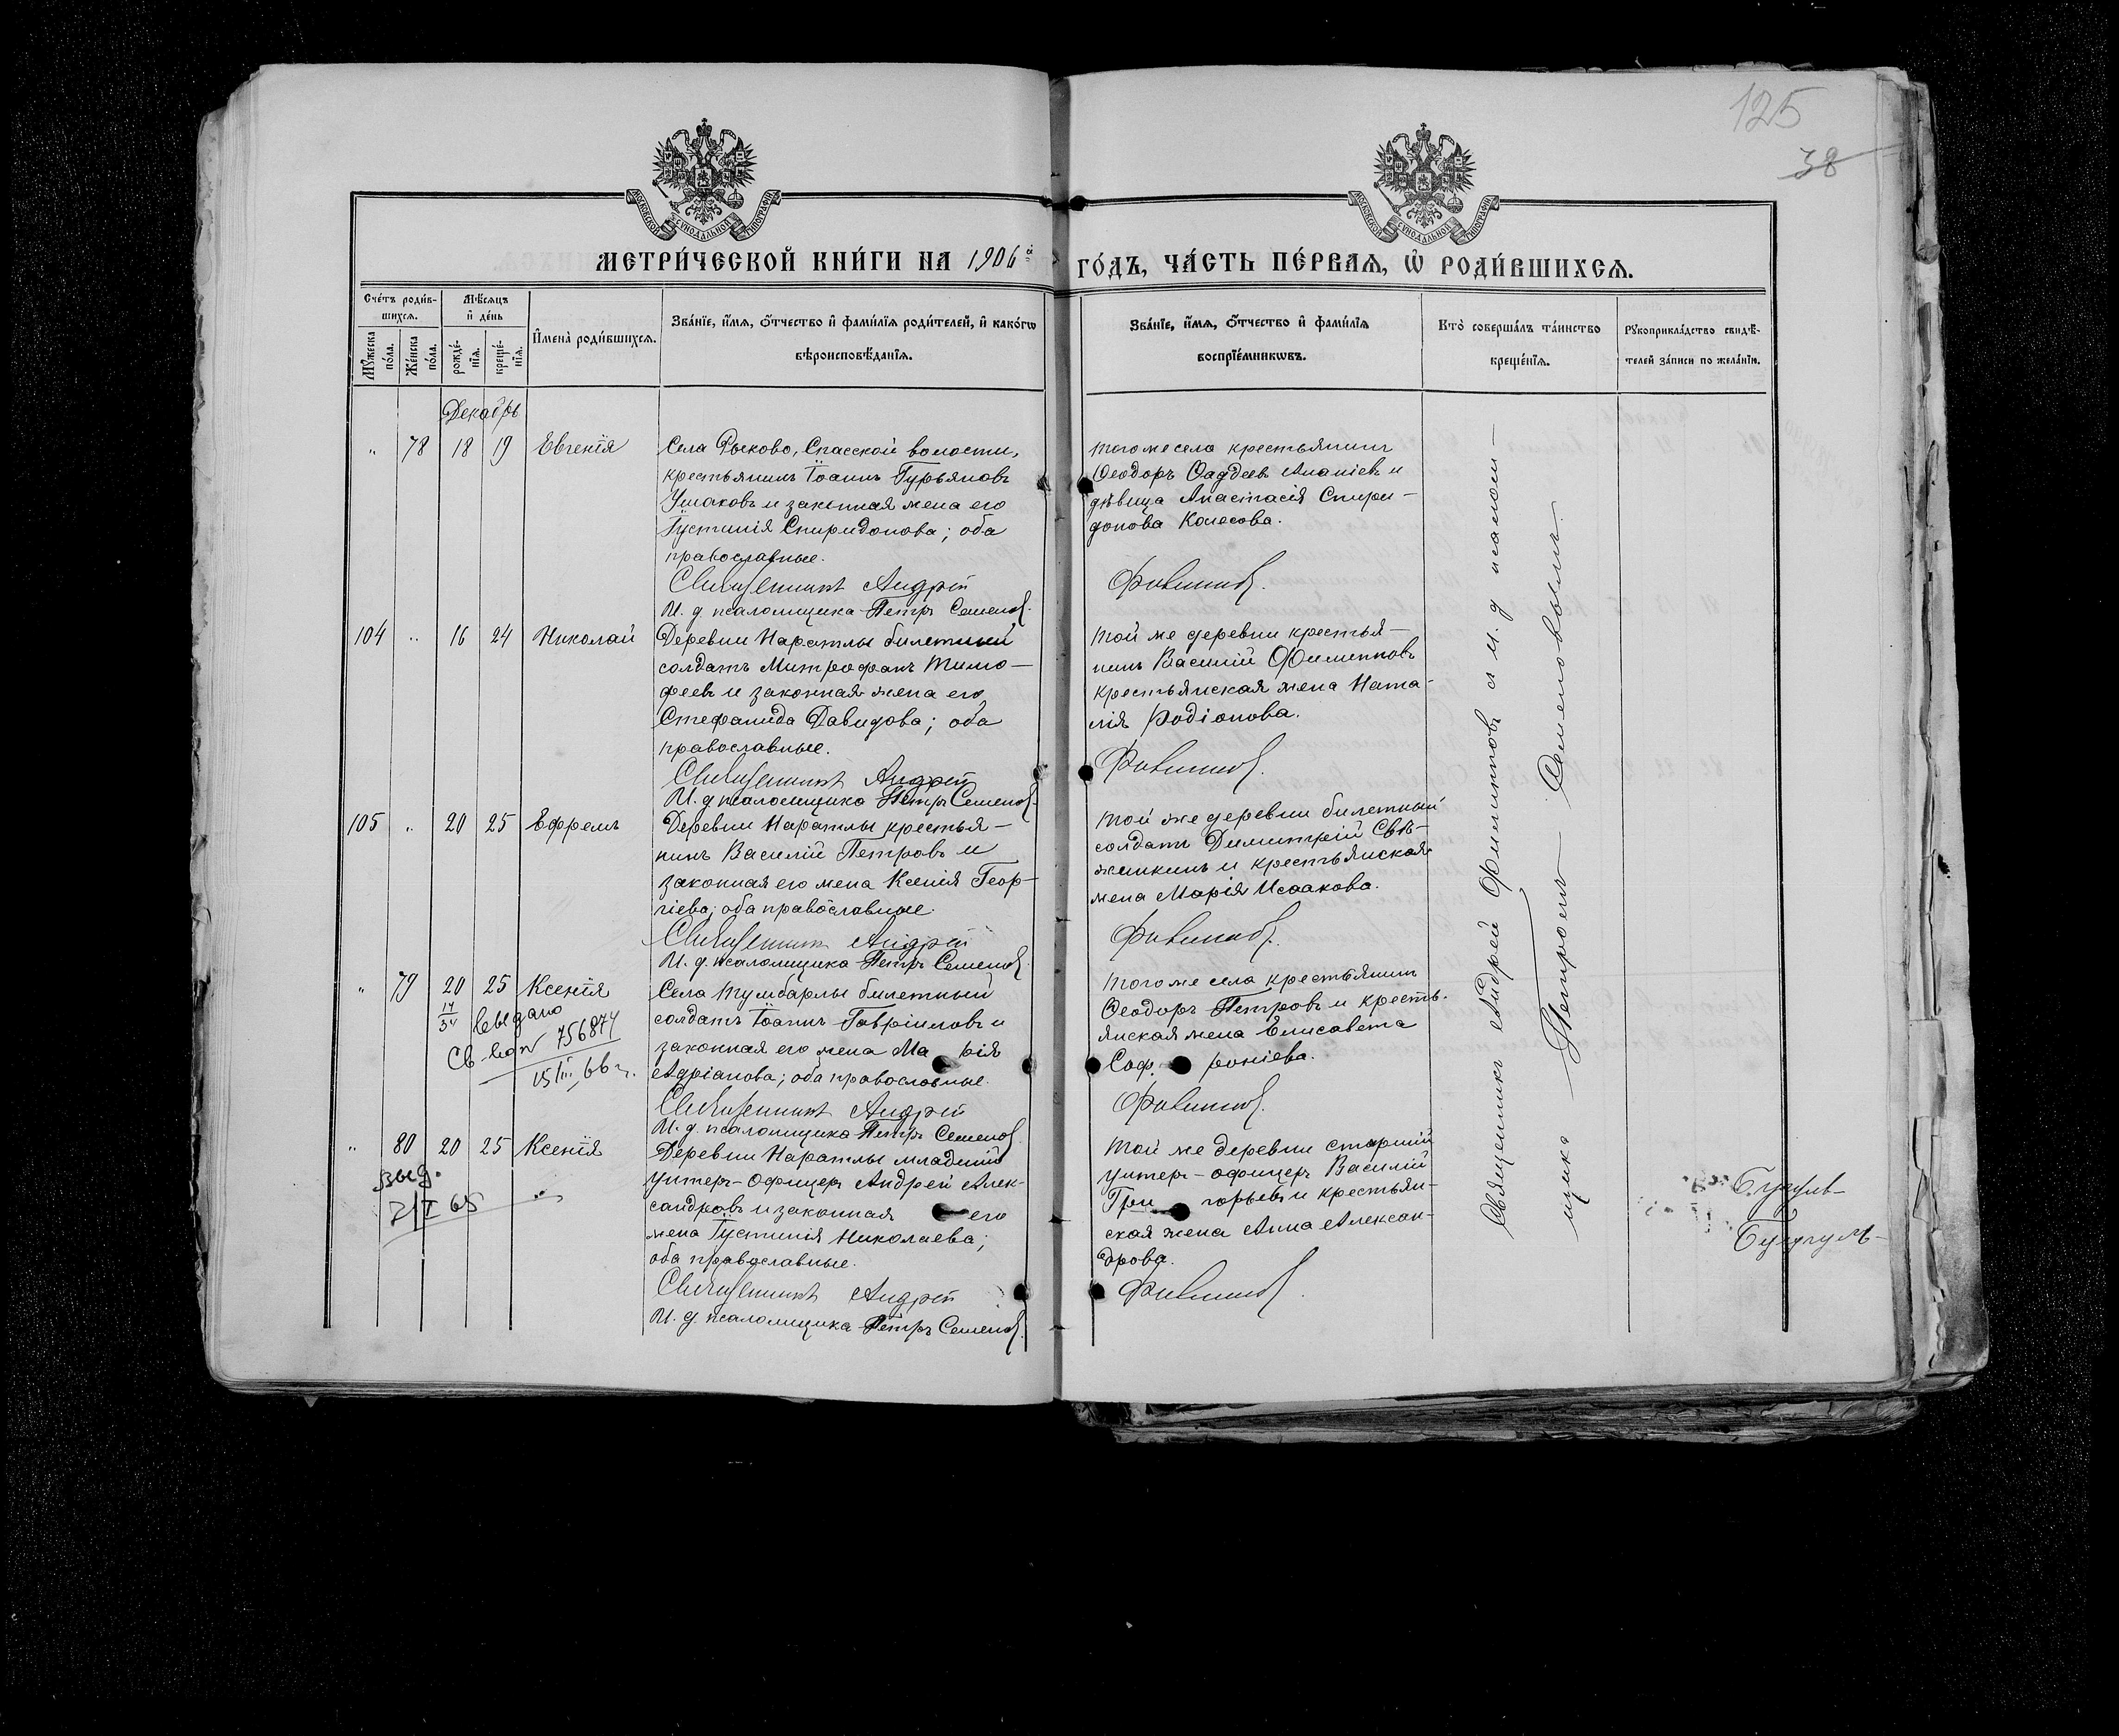 125
38
МОСКОВСКОЙ СѴНОДАЛЬНОЙ ТИПОГРАФІИ
МОСКОВСКОЙ СѴНОДАЛЬНОЙ ТИПОГРАФІИ
МЕТРИ́ЧЕСКОЙ КНИ́ГИ НА 1906 й
ГО́ДЪ, ЧА́СТЬ ПЕ́РВАЯ, Ѡ РОДИ́ВШИХСѦ.
Сче́тъ роди́в-
шихсѧ.
Мѣ́сяцъ
и҆ де́нь
Мꙋ́жеска
по́ла.
Же́нска
по́ла.
рожде́-
нїѧ.
креще́-
нїѧ.
И҆мена̀ роди́вшихсѧ.
Зва́нїе, и҆́мѧ, ѻ҆́тчество и҆ фами́лїѧ роди́телей, и҆ како́гѡ
вѣроисповѣ́данїѧ.
Зва́нїе, и҆́мѧ, ѻ҆́тчество и҆ фами́лїѧ
воспрїе́мникѡвъ.
Кто̀ соверша́лъ та́инство
креще́нїѧ.
Рꙋкоприкла́дство свидѣ́-
телей за́писи по жела́нїю.
Декабрь
„ 78 18 19 Евгенія
Села Рыково, Спасской волости,
крестьянинъ Іоаннъ Гурьяновъ
Ушаковъ и законная жена его
Іустинія Спиридонова; оба
православные.
Священникъ Андрей
И. д. псаломщика Петръ Семенов.
тогоже села крестьянинъ
Ѳеодоръ Ѳаддеевъ Ананіевъ и
дѣвица Анастасія Спири-
донова Колесова.
Филиппов.
104 „ 16 24 Николай
Деревни Наратлы билетный
солдатъ Митрофанъ Тимо-
феевъ и законная жена его
Стефанида Давидова; оба
православные.
Священникъ Андрей
И. д. псаломщика Петръ Семенов.
той же деревни крестья-
нинъ Василій Филипповъ
крестьянская жена Ната-
лія Родіонова.
Филиппов.
105 „ 20 25 Ефремъ
Деревни Наратлы крестья-
нинъ Василій Петровъ и
законная его жена Ксенія Геор-
гіева; оба православные.
Священникъ Андрей
И. д. псаломщика Петръ Семенов.
той же деревни билетный
солдатъ Димитрій Свѣ-
жинкинъ и крестьянская
жена Марія Исаакова.
Филиппов.
„ 79 20 25 Ксенія
выдано
св во № 756874
15/III 66 г.
Села Тумбарлы билетный
солдатъ Іоаннъ Гавріиловъ и
законная его жена Ма рія
Адріанова; оба православные.
Священникъ Андрей
И. д. псаломщика Петръ Семенов.
тогоже села крестьянинъ
Ѳеодоръ Петровъ и кресть-
янская жена Елисавета
Соф роніева.
Филиппов.
„ 80 20 25 Ксенія
выд.
7/I 65
Деревни Наратлы младшій
унтеръ-офицеръ Андрей Алек-
сандровъ и законная его
жена Іустинія Николаева;
оба православные.
Священникъ Андрей
И. д. псаломщика Петръ Семенов.
той же деревни старшій
унтеръ-офицеръ Василій
Гри горьевъ и крестьян-
ская жена Анна Алексан-
дрова.
Филиппов.
Священникъ Андрей Филипповъ съ и. д. псалом-
щика Петромъ Семеновымъ.